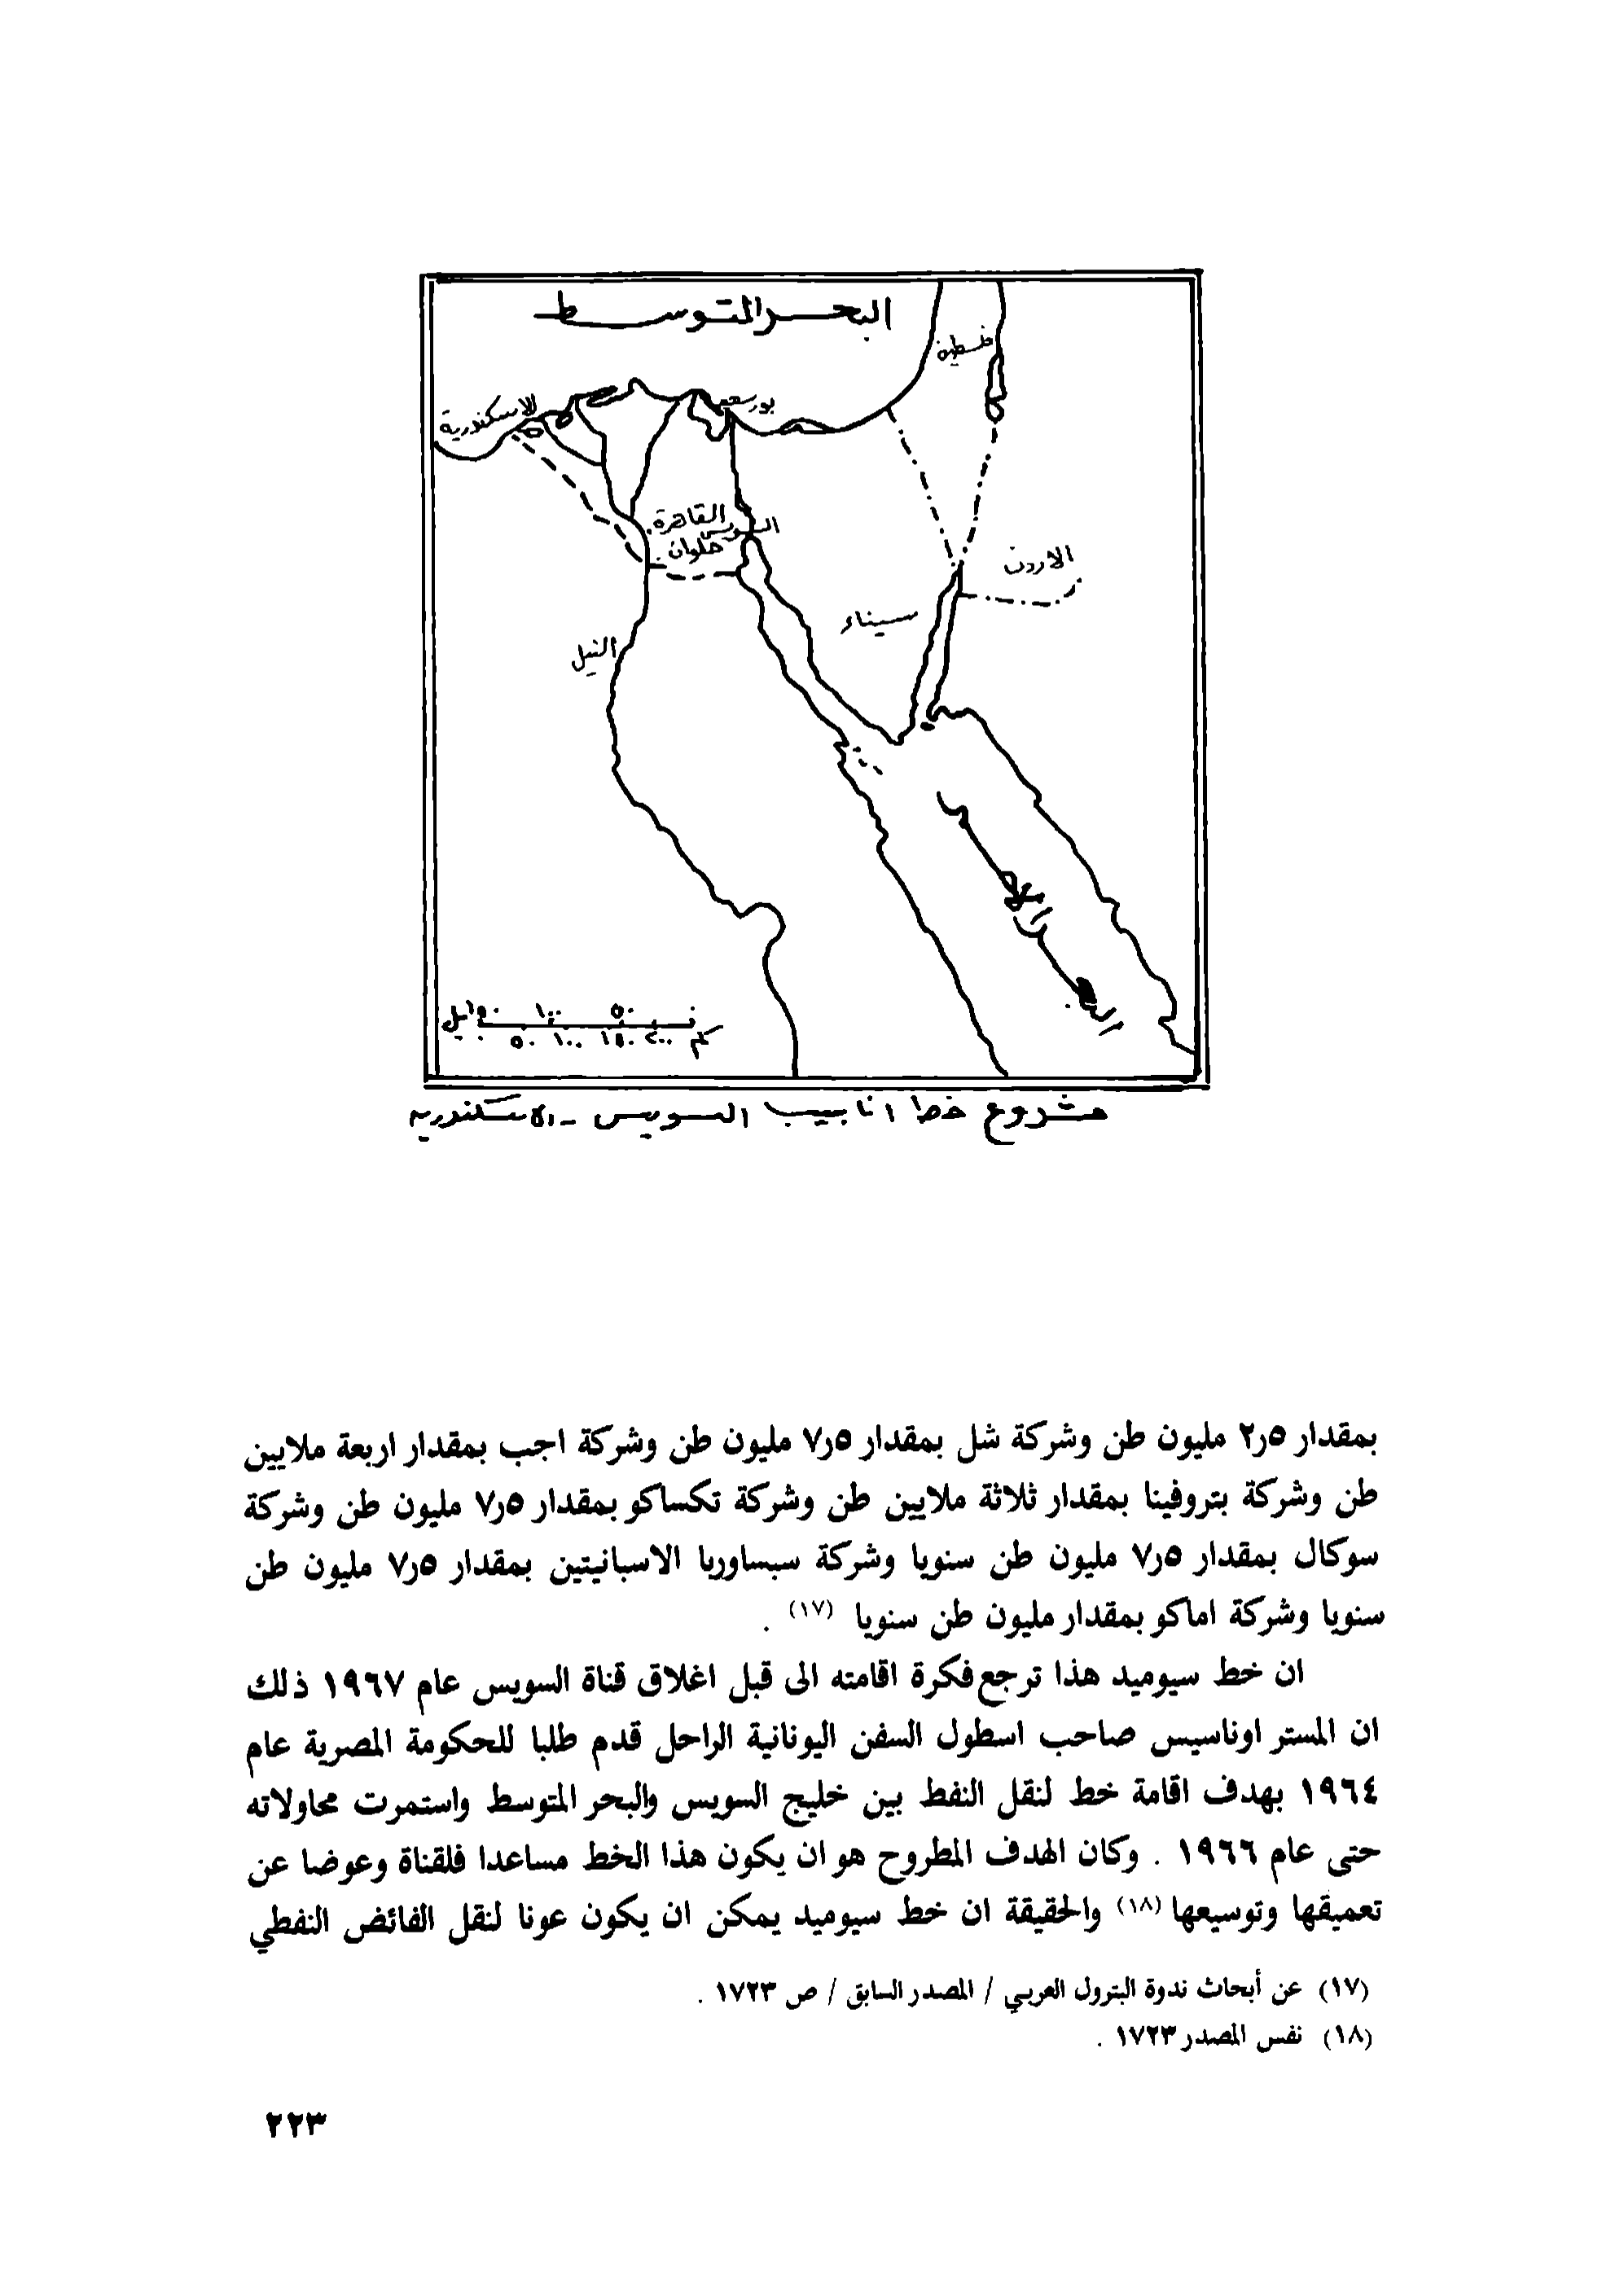 البحر المتوسط
فلسطين
بورسعيد
الاسكندرية
القاهرة
السويس
حلوان
الاردن
سيناء
النيل
البحر الاحمر
ميل ١٥٠ ١٠٠ ٥٠
٥٠ ١٠٠ ١٥٠ ٢٠٠ كم
مشروع خط انابيب السويس - الاسكندريه
بمقدار ٢٫٥ مليون طن وشركة شل بمقدار ٧٫٥ مليون طن وشركة اجب بمقدار اربعة ملايين
طن وشركة بتروفينا بمقدار ثلاثة ملايين طن وشركة تكساكو بمقدار ٧٫٥ مليون طن وشركة
سوكال بمقدار ٧٫٥ مليون طن سنويا وشركة سبساوربا الاسبانيتين بمقدار ٧٫٥ مليون طن
سنويا وشركة اماكو بمقدار مليون طن سنويا (١٧) .
ان خط سيوميد هذا ترجع فكرة اقامته الى قبل اغلاق قناة السويس عام ١٩٦٧ ذلك
ان المستر اوناسيس صاحب اسطول السفن اليونانية الراحل قدم طلبا للحكومة المصرية عام
١٩٦٤ بهدف اقامة خط لنقل النفط بين خليج السويس والبحر المتوسط واستمرت محاولاته
حتى عام ١٩٦٦ . وكان الهدف المطروح هو ان يكون هذا الخط مساعدا فلقناة وعوضا عن
تعميقها وتوسيعها (١٨) والحقيقة ان خط سيوميد يمكن ان يكون عونا لنقل الفائض النفطي
(١٧) عن أبحاث ندوة البترول العربي / المصدر السابق / ص ١٧٢٣ .
(١٨) نفس المصدر ١٧٢٣ .
٢٢٣